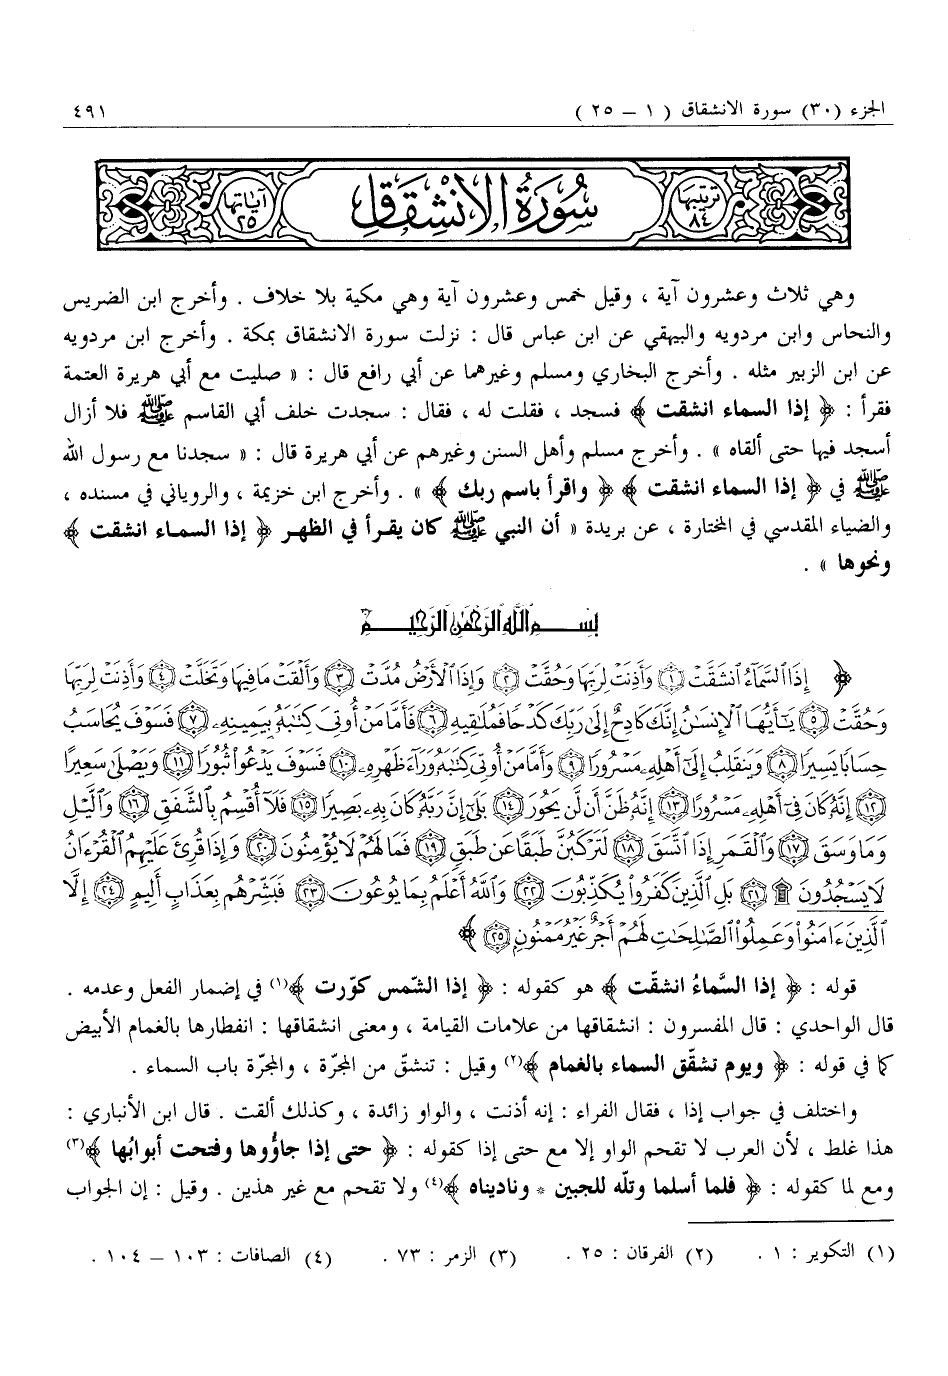 الجزء (٣٠) سورة الانشقاق ( ١ – ٢٥ ) ٤٩١
ترتيبها ٨٤ سُورَةُ الانْشِقَاقِ آياتها ٢٥
وهي ثلاث وعشرون آية ، وقيل خمس وعشرون آية وهي مكية بلا خلاف . وأخرج ابن الضريس
والنحاس وابن مردويه والبيهقي عن ابن عباس قال : نزلت سورة الانشقاق بمكة . وأخرج ابن مردويه
عن ابن الزبير مثله . وأخرج البخاري ومسلم وغيرهما عن أبي رافع قال : « صليت مع أبي هريرة العتمة
فقرأ : ﴿ إذا السماء انشقت ﴾ فسجد ، فقلت له ، فقال : سجدت خلف أبي القاسم ﷺ فلا أزال
أسجد فيها حتى ألقاه » . وأخرج مسلم وأهل السنن وغيرهم عن أبي هريرة قال : « سجدنا مع رسول الله
ﷺ في ﴿ إذا السماء انشقت ﴾ ﴿ واقرأ باسم ربك ﴾ » . وأخرج ابن خزيمة ، والروياني في مسنده ،
والضياء المقدسي في المختارة ، عن بريدة « أن النبي ﷺ كان يقرأ في الظهر ﴿ إذا السماء انشقت ﴾
ونحوها » .
بسم الله الرحمن الرحيم
﴿ إِذَا ٱلسَّمَآءُ ٱنشَقَّتْ ١ وَأَذِنَتْ لِرَبِّهَا وَحُقَّتْ ٢ وَإِذَا ٱلْأَرْضُ مُدَّتْ ٣ وَأَلْقَتْ مَا فِيهَا وَتَخَلَّتْ ٤ وَأَذِنَتْ لِرَبِّهَا
وَحُقَّتْ ٥ يَٰٓأَيُّهَا ٱلْإِنسَٰنُ إِنَّكَ كَادِحٌ إِلَىٰ رَبِّكَ كَدْحًا فَمُلَٰقِيهِ ٦ فَأَمَّا مَنْ أُوتِىَ كِتَٰبَهُۥ بِيَمِينِهِۦ ٧ فَسَوْفَ يُحَاسَبُ
حِسَابًا يَسِيرًا ٨ وَيَنقَلِبُ إِلَىٰٓ أَهْلِهِۦ مَسْرُورًا ٩ وَأَمَّا مَنْ أُوتِىَ كِتَٰبَهُۥ وَرَآءَ ظَهْرِهِۦ ١٠ فَسَوْفَ يَدْعُوا۟ ثُبُورًا ١١ وَيَصْلَىٰ سَعِيرًا
١٢ إِنَّهُۥ كَانَ فِىٓ أَهْلِهِۦ مَسْرُورًا ١٣ إِنَّهُۥ ظَنَّ أَن لَّن يَحُورَ ١٤ بَلَىٰٓ إِنَّ رَبَّهُۥ كَانَ بِهِۦ بَصِيرًا ١٥ فَلَآ أُقْسِمُ بِٱلشَّفَقِ ١٦ وَٱلَّيْلِ
وَمَا وَسَقَ ١٧ وَٱلْقَمَرِ إِذَا ٱتَّسَقَ ١٨ لَتَرْكَبُنَّ طَبَقًا عَن طَبَقٍ ١٩ فَمَا لَهُمْ لَا يُؤْمِنُونَ ٢٠ وَإِذَا قُرِئَ عَلَيْهِمُ ٱلْقُرْءَانُ
لَا يَسْجُدُونَ ۩ ٢١ بَلِ ٱلَّذِينَ كَفَرُوا۟ يُكَذِّبُونَ ٢٢ وَٱللَّهُ أَعْلَمُ بِمَا يُوعُونَ ٢٣ فَبَشِّرْهُم بِعَذَابٍ أَلِيمٍ ٢٤ إِلَّا
ٱلَّذِينَ ءَامَنُوا۟ وَعَمِلُوا۟ ٱلصَّٰلِحَٰتِ لَهُمْ أَجْرٌ غَيْرُ مَمْنُونٍ ٢٥ ﴾
قوله : ﴿ إذا السَّماءُ انشقّت ﴾ هو كقوله : ﴿ إذا الشّمس كوّرت ﴾(١) في إضمار الفعل وعدمه .
قال الواحدي : قال المفسرون : انشقاقها من علامات القيامة ، ومعنى انشقاقها : انفطارها بالغمام الأبيض
كما في قوله : ﴿ ويوم تشقّق السماء بالغمام ﴾(٢) وقيل : تنشقّ من المجرّة ، والمجرّة باب السماء .
واختلف في جواب إذا ، فقال الفراء : إنه أذنت ، والواو زائدة ، وكذلك ألقت . قال ابن الأنباري :
هذا غلط ، لأن العرب لا تقحم الواو إلا مع حتى إذا كقوله : ﴿ حتى إذا جاؤُوها وفتحت أبوابُها ﴾(٣)
ومع لما كقوله : ﴿ فلما أسلما وتلّه للجبين * وناديناه ﴾(٤) ولا تقحم مع غير هذين . وقيل : إن الجواب
(١) التكوير : ١ . (٢) الفرقان : ٢٥ . (٣) الزمر : ٧٣ . (٤) الصافات : ١٠٣ – ١٠٤ .